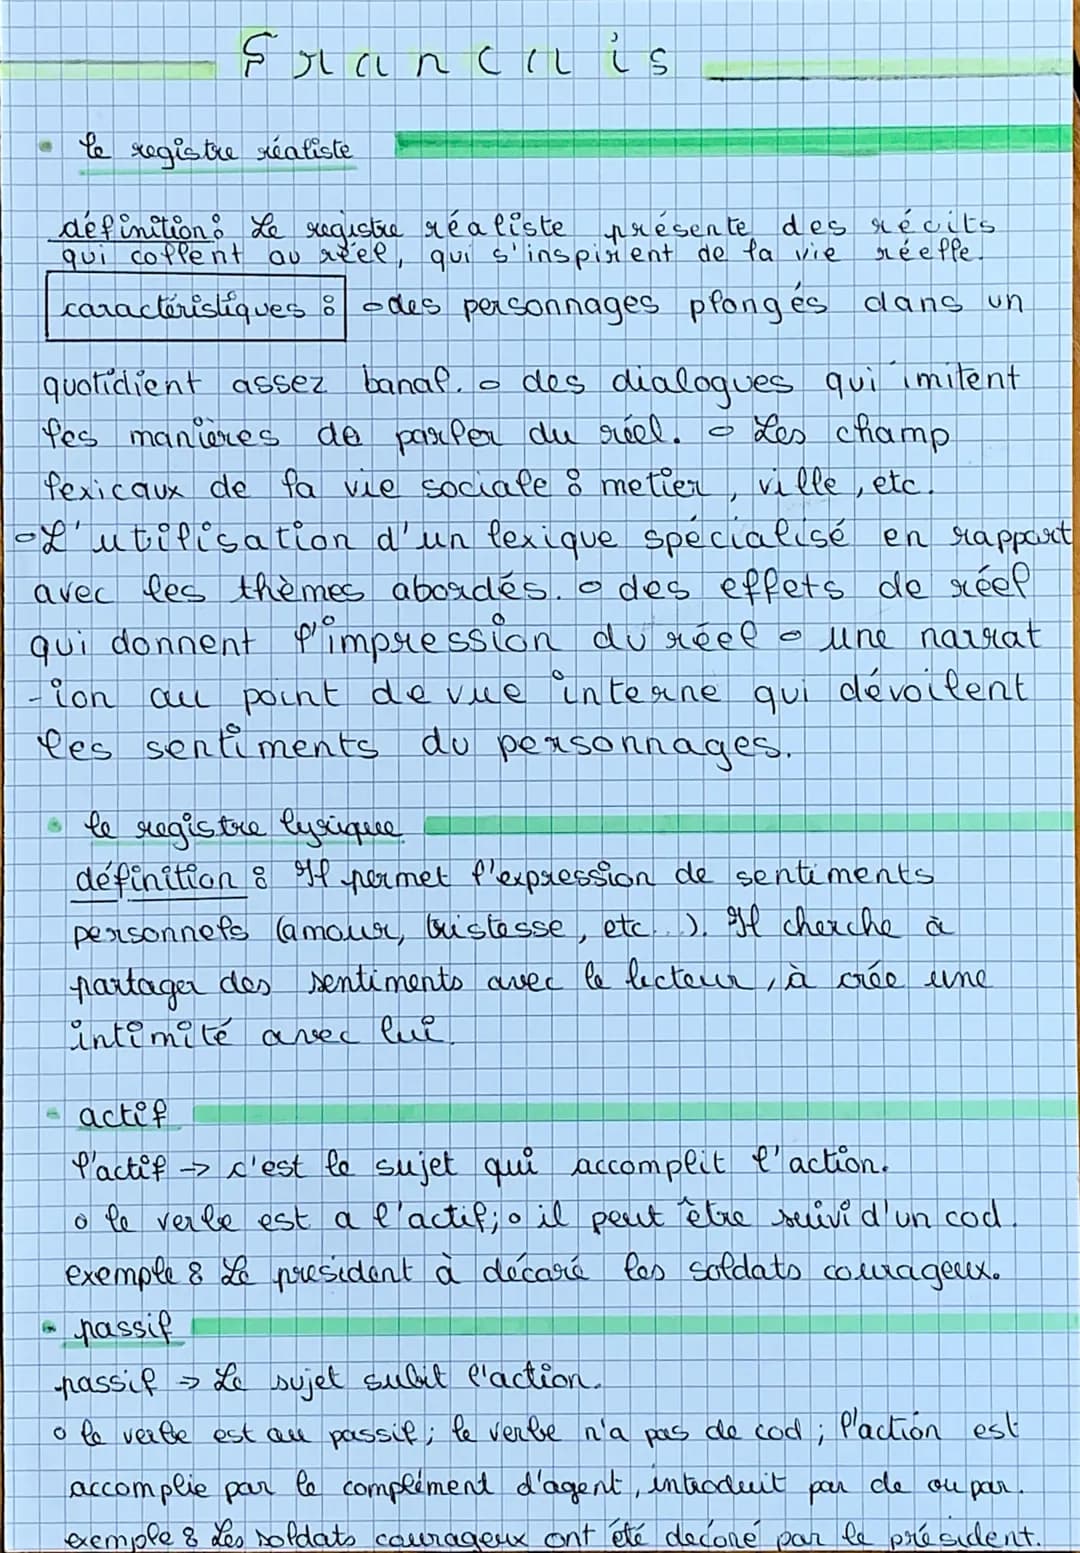 Francais
le registre réaliste
définition : Le registre réaliste présente des récits
qui collent au réel, qui s'inspirent de la vie réelle.
caractéristiques : o des personnages plongés dans un
quotidient assez banal. o des dialogues qui imitent
les manières de parler du réel. o Les champ
lexicaux de la vie sociale : metier, ville, etc.
o L'utilisation d'un lexique spécialisé en rapport
avec les thèmes abordés. o des effets de réel
qui donnent l'impression du réel o une narrat
-ion au point de vue interne qui dévoilent
les sentiments du personnages.
le registre lyrique
définition : Il permet l'expression de sentiments
personnels (amour, tristesse, etc...). Il cherche à
partager des sentiments avec le lecteur, à crée une
intimité avec lui.
actif
l'actif → c'est le sujet qui accomplit l'action.
o le verbe est a l'actif; o il peut être suivi d'un cod.
exemple : Le président à décaré les soldats courageux.
passif
passif → Le sujet subit l'action.
o le verbe est au passif; le verbe n'a pas de cod; l'action est
accomplie par le complément d'agent, introduit par de ou par.
exemple : Les soldats courageux ont été decoré par le président.